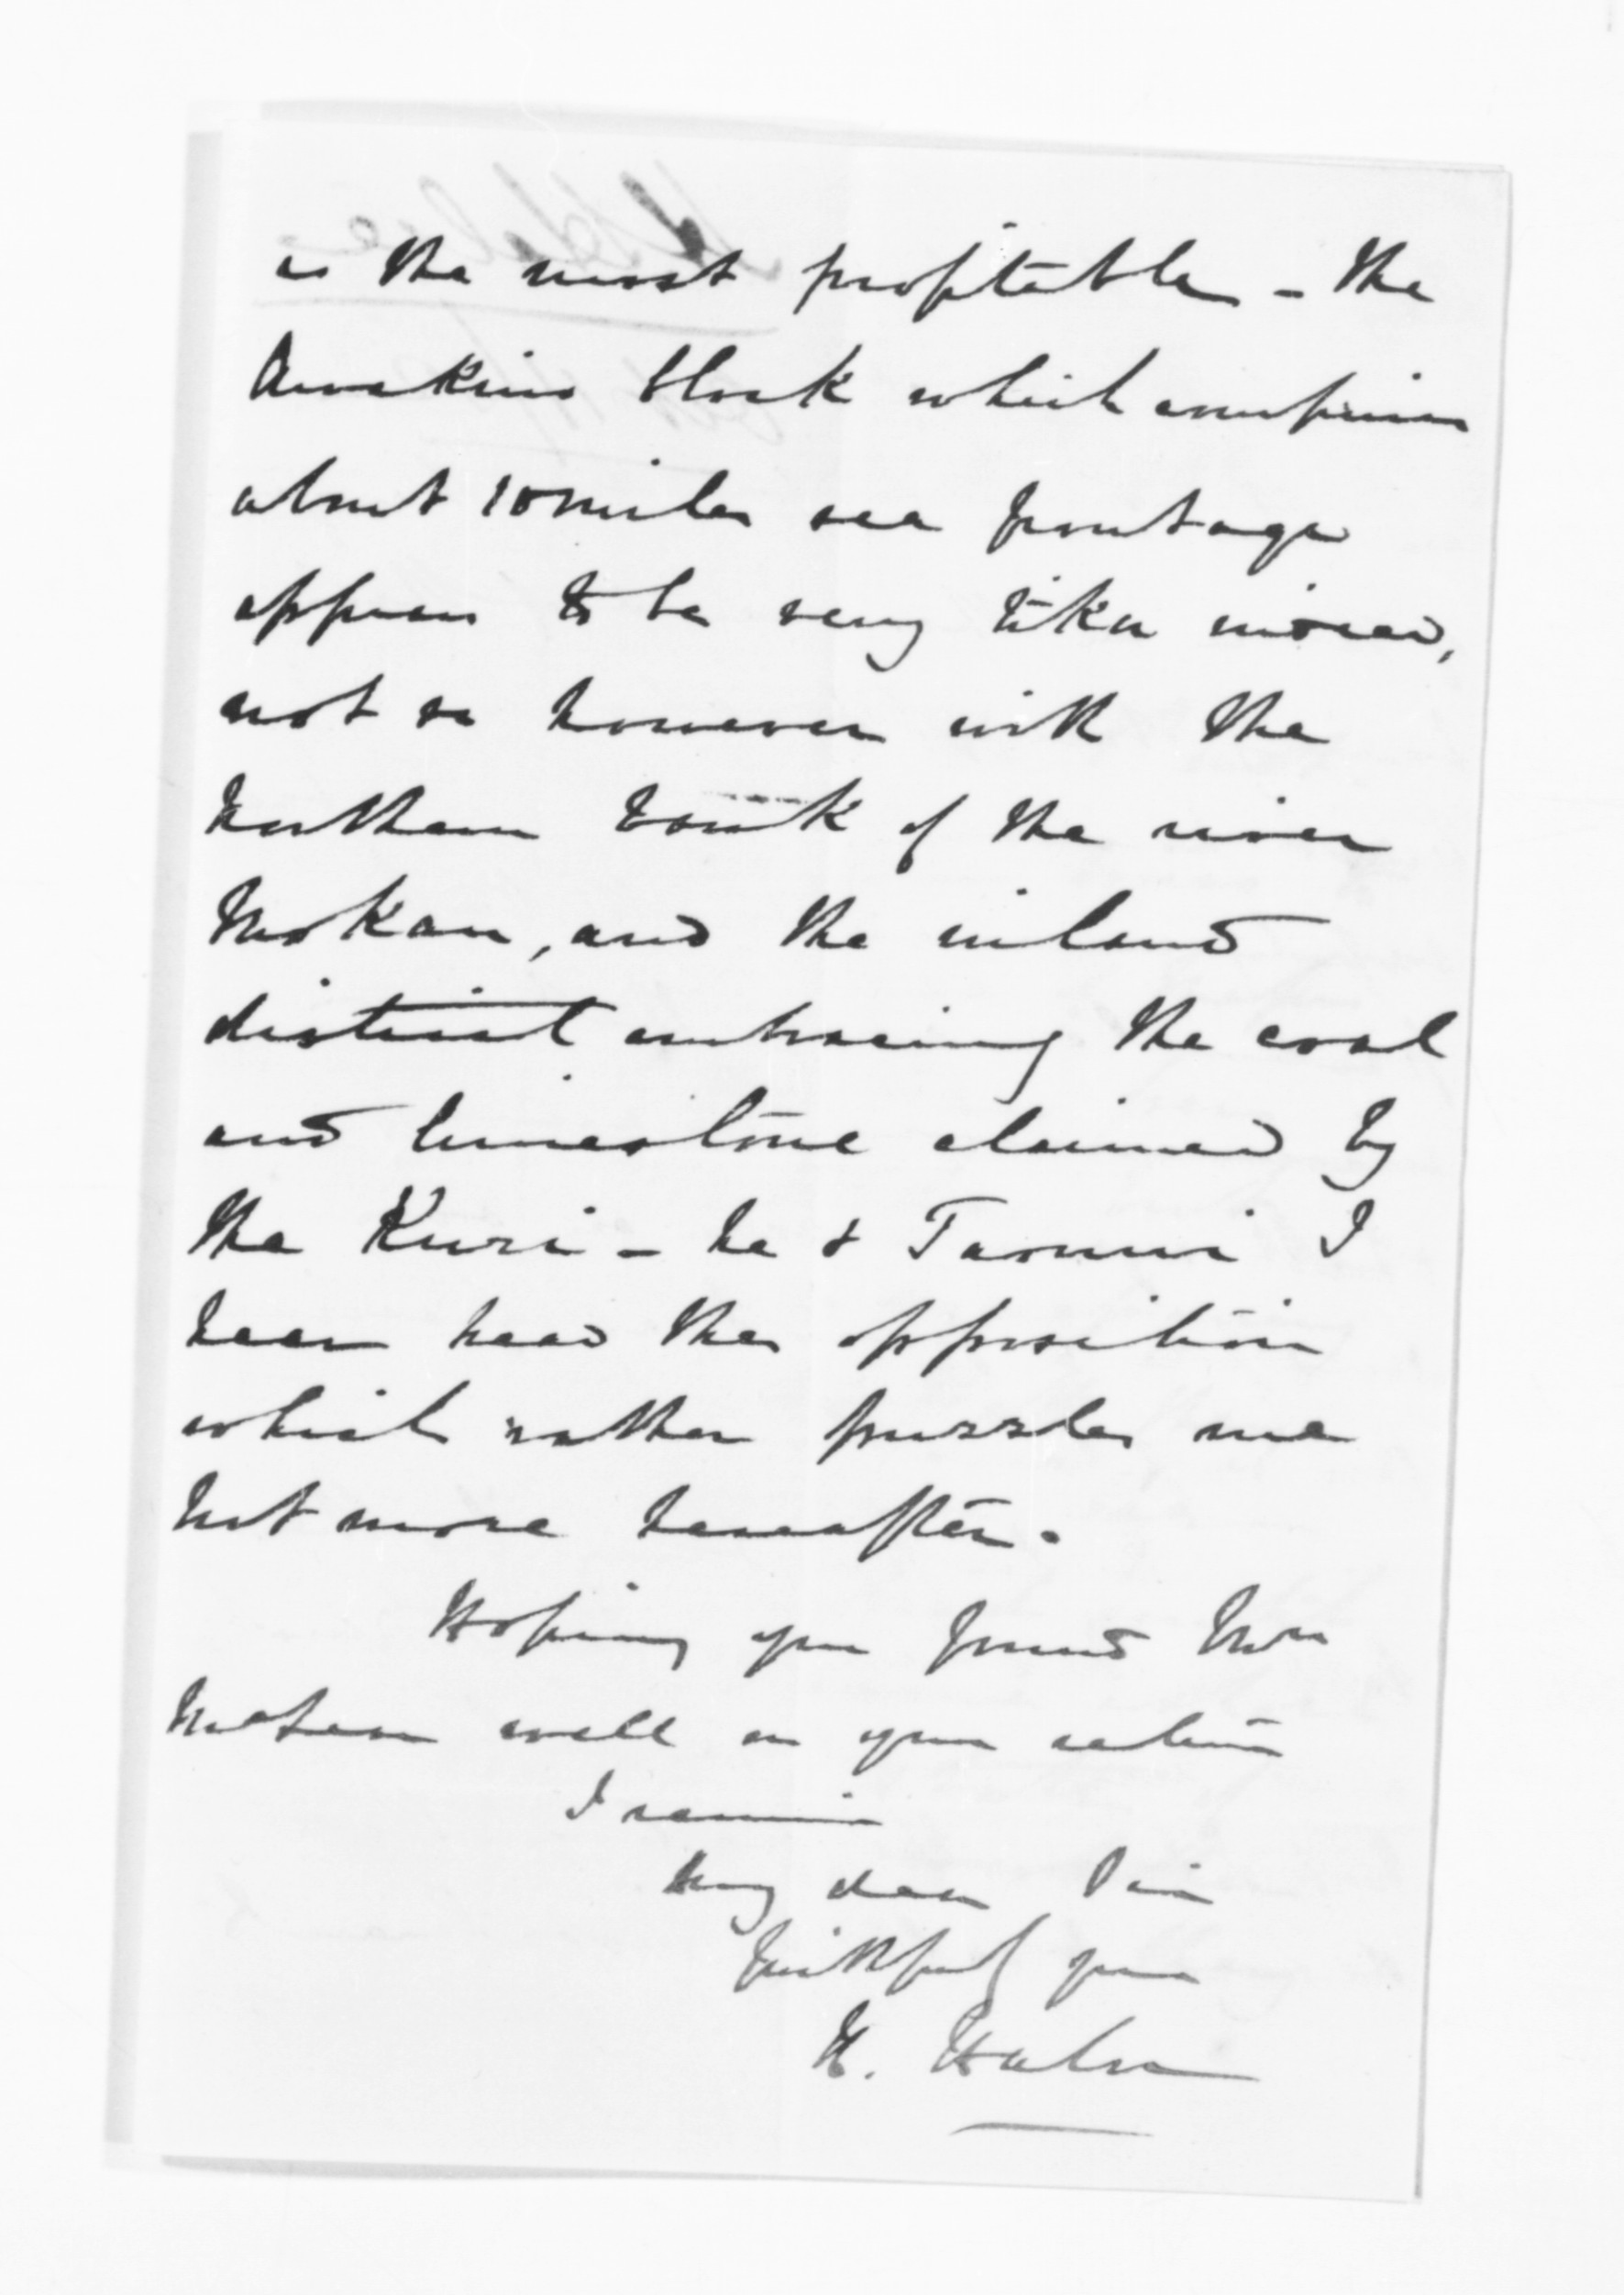 is the most profitable - the
Awakino block which comprises
about 10 miles sea frontage
appears to be very tika noiea,
not so however with the
Northern bank of the river
Mokau, and the inland
district embracing the coal
and limestone claimed by
Te Kuri - he & Taonui I
hear head the opposition
which rather puzzles me
but more hereafter.
Hoping you found Mrs
McLean well on your return
I remain
My dear Sir
faithfully yours
H. Halse